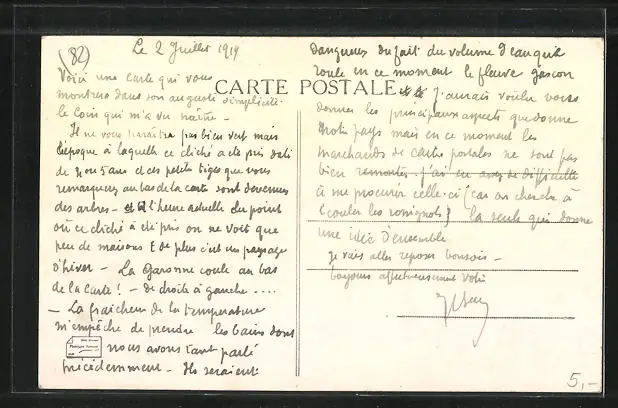 (82)
Le 2 Juillet 1919
Voici une carte qui vous
montrera dans son auguste simplicité
le coin qui m'a vu naître -
Il ne vous paraîtra pas bien vert mais
l'époque à laquelle ce cliché a été pris date
de 4 ou 5 ans et ces petites tiges que vous
remarquez au bas de la carte sont devenues
des arbres - et à l'heure actuelle du point
où ce cliché a été pris on ne voit que
peu de maisons & de plus c'est un paysage
d'hiver - La Garonne coule au bas
de la carte ! - de droite à gauche ....
- La fraîcheur de la température
m'empêche de prendre les bains dont
nous avons tant parlé
précédemment - Ils seraient
CARTE POSTALE
dangereux du fait du volume d'eau que
roule en ce moment le fleuve gascon
J'aurais voulu vous
donner les principaux aspects que donne
notre pays mais en ce moment les
marchands de cartes postales ne sont pas
bien remontés. j'ai eu assez de difficulté
à me procurer celle-ci (car on cherche à
écouler les rossignols) la seule qui donne
une idée d'ensemble
je vais aller reposer bonsoir -
affectueusement votre
5,-